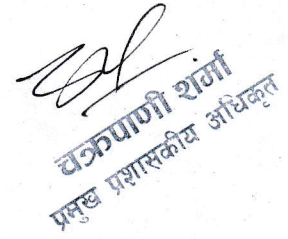 चक्रपाणी शर्मा
प्रमुख प्रशासकीय अधिकृत